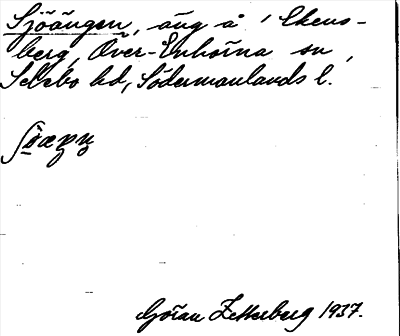 Sjöängen, äng å Ekens-
berg, Över-Enhörna sn,
Selebo hd, Södermanlands l.
Göran Zetterberg 1937.